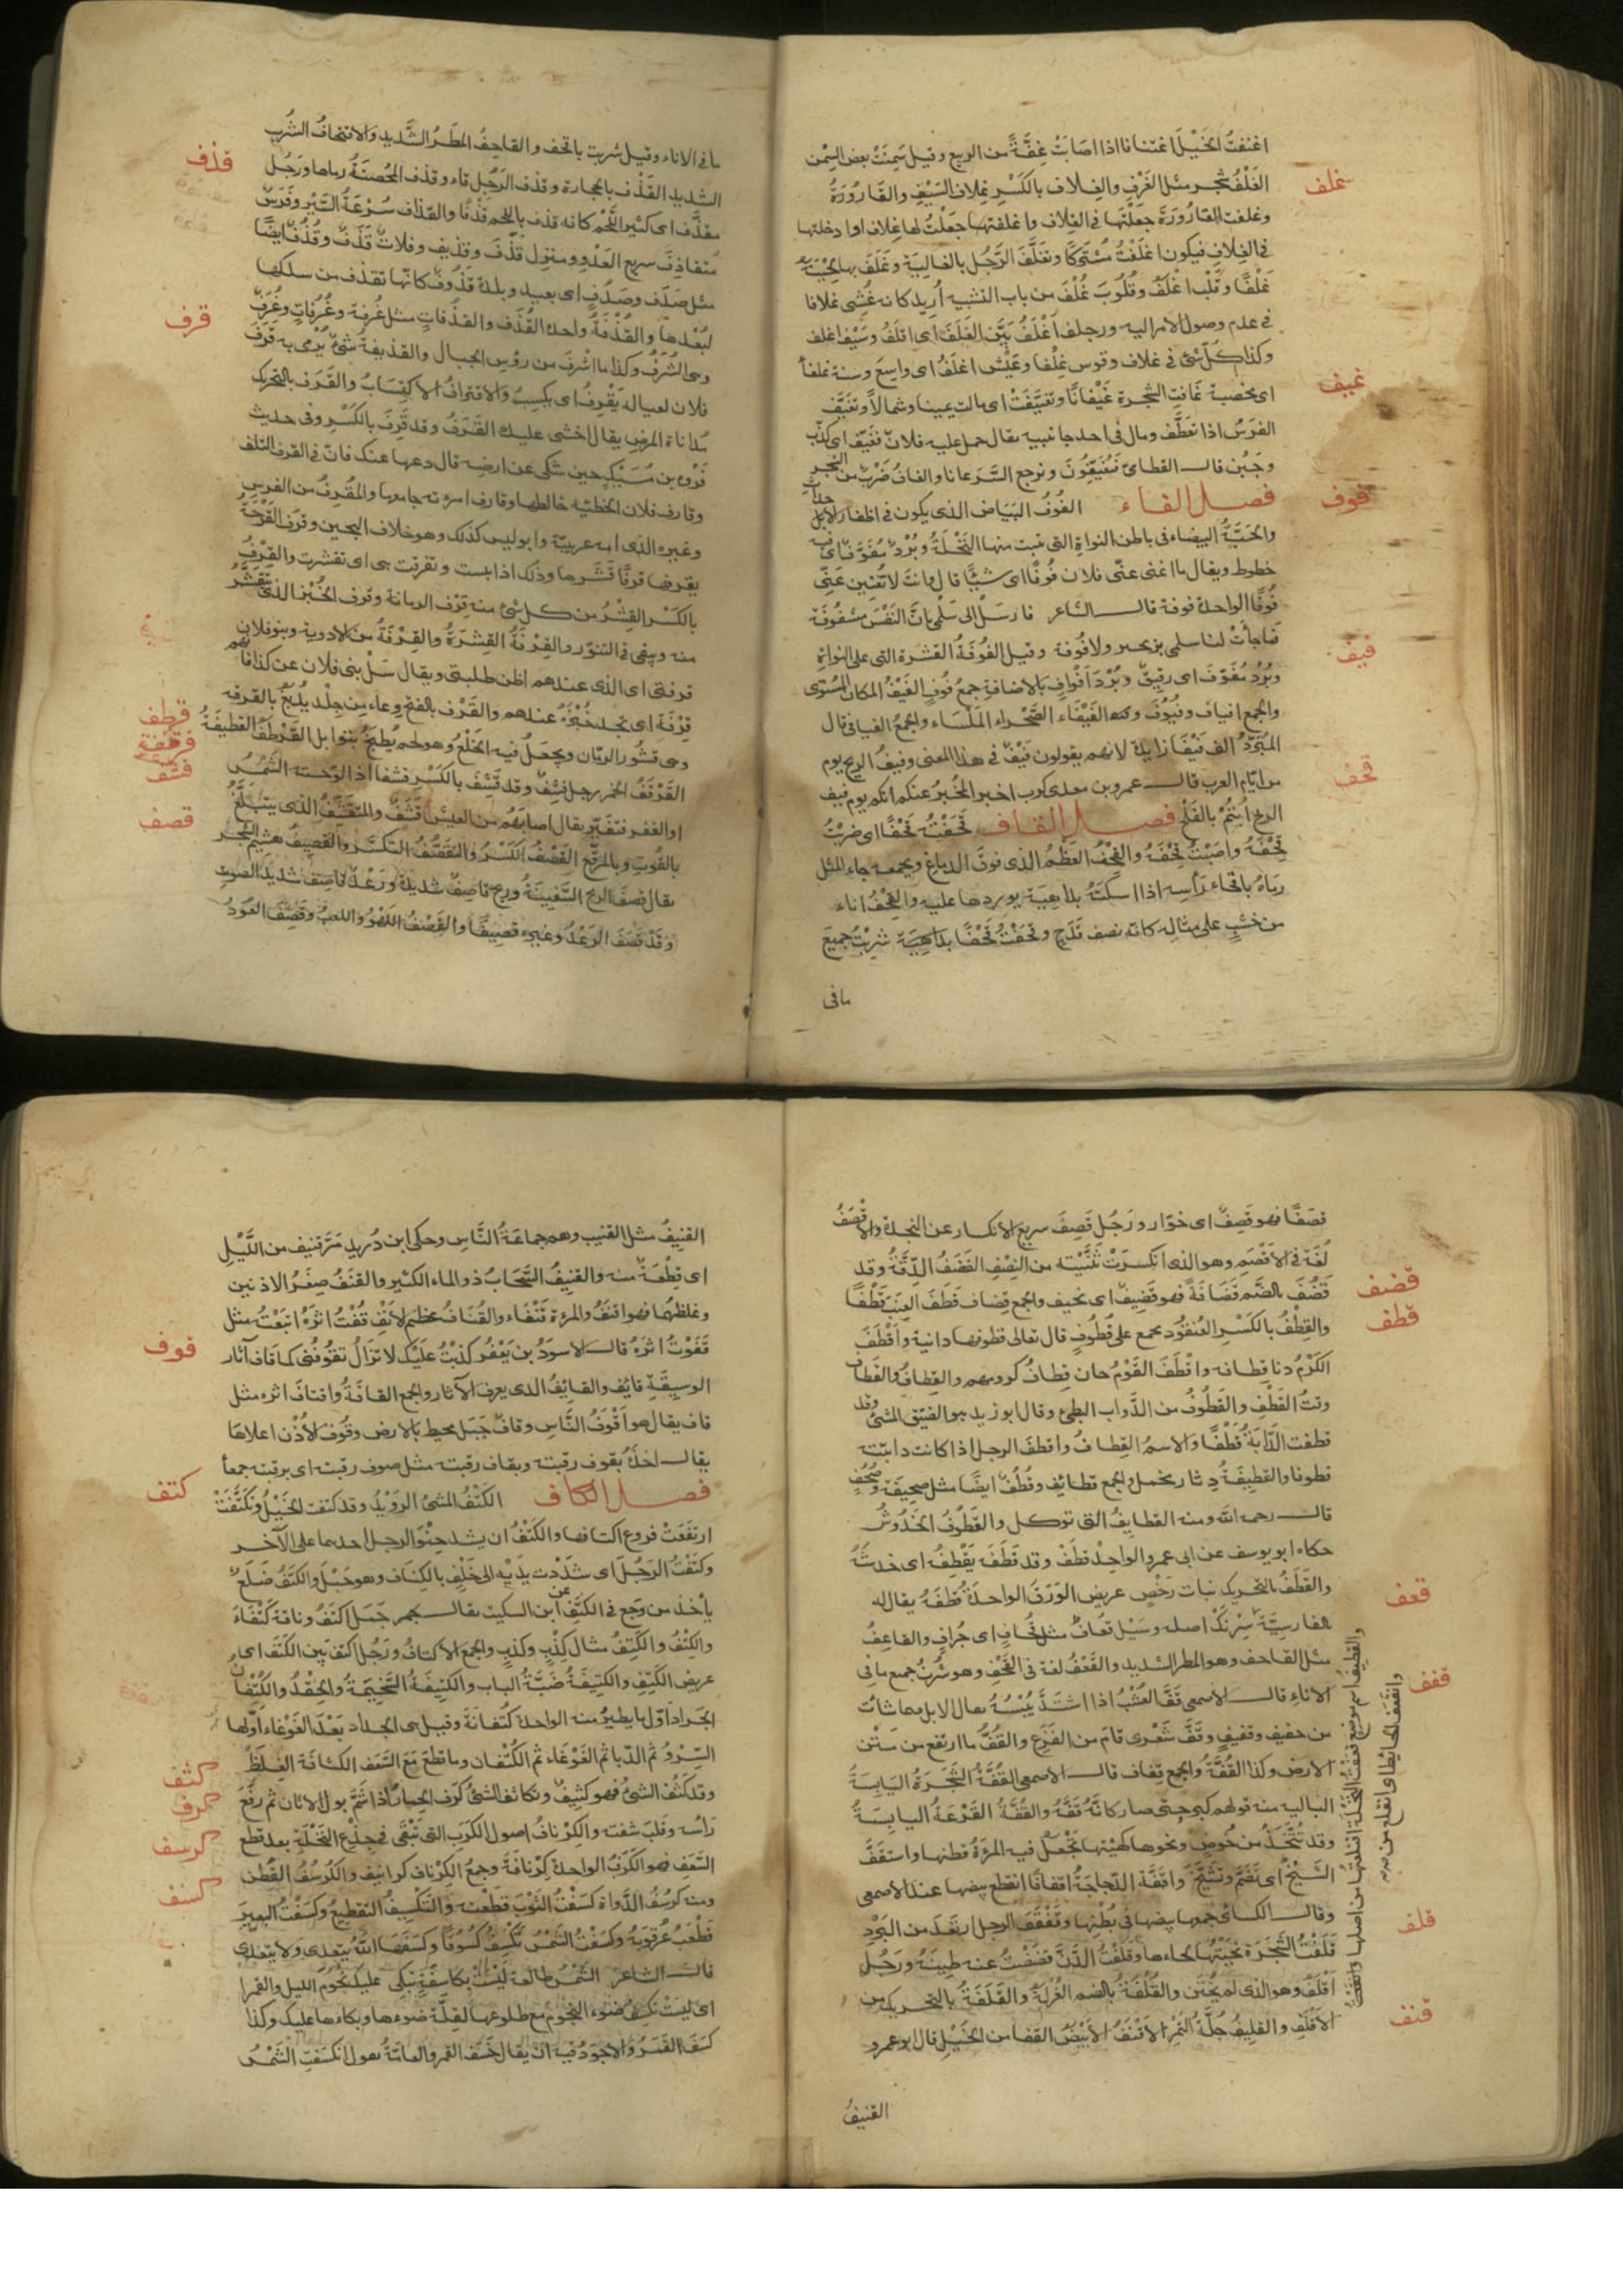 اغتفت الخيل اغتفافا اذا اصابت غفة من الربيع وقيل سمنت بعض السمن
غلف
الغلف شجر مثل الغرف والغلاف بالكسر غلاف السيف والقارورة
وغلفت القارورة جعلتها فى الغلاف واغلفتها جعلت لها غلافا او ادخلتها
فى الغلاف فيكون اغلفت مشتركا وتغلف الرجل بالغالية وغلف بها لحيته
غلفا وقلب اغلف وقلوب غلف من باب التشبيه اريد كانه غشى غلافا
فى عدم وصول الامر اليه ورجل اغلف بين الغلف اى اقلف وسيف اغلف
وكذا كل شئ فى غلاف وقوس غلفا وعيش اغلف اى واسع وسنة غلفا
غيف
اى مخصبة غافت الشجرة غيفانا وتغيفت اى مالت يمينا وشمالا وتغيف
الفرس اذا تعطف ومال فى احد جانبيه يقال حمل عليه فلان فغيف اى كذب
وجبن قال القطامى فيغيفون ونرجع السرعانا والغاف ضرب من الشجر
فوف
فصل الفاء الفوف البياض الذى يكون فى اظفار الاحداث
والحبة البيضاء فى باطن النواة التى تنبت منها النخلة وبرد مفوف اى فيه
خطوط ويقال ما اغنى عنى فلان فوفا اى شيئا
فوفا الواحدة فوفة قال الشاعر فارسل الى سلمى بان النفس مشفوفة
فما جادت لنا سلمى بزنجير ولا فوفة وقيل الفوفة القشرة التى على النواة
فيف
وبرد مفوف اى رقيق وبرد افواف بالاضافة جمع فوف الفيف المكان المستوى
والجمع افياف وفيوف وكذا الفيفاء الصحراء الملساء والجمع الفيافى قال
المبرد الف فيفا زايدة لانهم يقولون فيف فى هذا المعنى وفيف الريح يوم
من ايام العرب قال عمرو بن معدى كرب اخبر المخبر عنكم انكم يوم فيف
قحف
الريح ابتم بالفلج فصل القاف قحفته قحفا اى ضربت
قحفه واصبت قحفه والقحف العظم الذى فوق الدماغ وبجمعه جاء المثل
رماه باقحاف راسه اذا اسكته بداهية يوردها عليه والقحف اناء
من خشب على مثاله كانه نصف قدح وقحفت قحفا شربت جميع
مافى
مافى الاناء وقيل شربت باقحف والقاحف المطر الشديد والاقتحاف الشرب
قذف
الشديد القذف بالحجارة وقذف الرجل قاء وقذف المحصنة رماها ورجل
مقذف اى كثير اللحم كانه قذف باللحم قذفا والقذاف سرعة السير وفرس
متقاذف سريع العدو ومنزل قذف وقذيف وفلات قذف وقذف ايضا
مثل صدف وصدف اى بعيد وبلدة قذوف كانها تقذف من سلكها
لبعدها والقذفة واحدة القذف والقذفات مثل غرفة وغرفات وغرف
قرف
وهى الشرف وكذا ما اشرف من رؤس الجبال والقذيفة شئ يرمى به قرف
فلان لعياله يقرف اى يكسب والاقتراف الاكتساب والقرف بالتحريك
مداناة المرض يقال اخشى عليك القرف وقد قرف بالكسر وفى حديث
فروة بن مسيك حين شكى عن ارضه قال دعها عنك فان فى القرف التلف
وقارف فلان الخطئية خالطها وقارف امرءته جامعها والمقرف من الفرس
وغيره الذى امه عربية وابو ليس كذلك وهو خلاف الهجين وقرف القرحة
يقرفها قرفا قشرها وذلك اذا يبست وتقرفت هى اى تقشرت والقرف
بالكسر القشر من كل شئ منه قرف الرمانة وقرف الخبز الذى تقشر
منه ويبقى فى التنور والقرفة القشرة والقرفة من الادوية وبنو فلان
قرفتى اى الذى عندهم اظن طلبتى ويقال سل بنى فلان عن كذا فانهم
قرفة اى تجد خبره عندهم والقرف بالفتح وعاء من جلد يدبغ بالقرفه
قرطف
وهى قشور الرمان ويجعل فيه الخلع وهو لحم يطبخ بتوابل القرطف القطيفة
قرقف
قشف
القرقف الخمر رجل قشف وقد قشف بالكسر قشفا اذا لوحته الشمس
او الفقر فتغير يقال اصابهم من العيش قشف والمتقشف الذى يتبلغ
قصف
بالقوت وبالمرقع القصف الكسر والتقصف التكسر والقصيف هشيم الشجر
يقال قصف الريح السفينة وريح قاصف شديدة ورعد قاصف شديد الصوت
وقد قصف الرعد وغيره قصيفا والقصف اللهو واللعب وقصف العود
قصفا فهو قصف اى خوار ورجل قصف سريع الانكسار عن النجدة والاقصف
لغة فى الاقصم وهو الذى انكسرت ثنيته من النصف القضف الدقة وقد
قضف
قضف بالضم قضافة فهو قضيف اى نحيف والجمع قضاف قطف العنب قطفا
قطف
والقطف بالكسر العنقود بجمع على قطوف قال تعالى قطوفها دانية واقطف
الكرم دنا قطافه واقطف القوم حان قطاف كرومهم والقطاف والقطاف
وقت القطف والقطوف من الدواب البطئ وقال ابو زيد هو الضيق المشى وقد
قطفت الدابة قطفا والاسم القطاف واقطف الرجل اذا كانت دابته
قطوفا والقطيفة دثار مخمل والجمع قطائف وقطف ايضا مثل صحيفة وصحف
قال رحمه الله ومنه القطايف التى توكل والقطوف الخدوش
حكاه ابو يوسف عن ابى عمرو الواحد قطف وقد قطف يقطف اى خدشه
والقطف بالتحريك نبات رخص عريض الورق الواحدة قطفة يقال له
قعف
بالفارسية سرنك اصله وسيل قعاف مثل قحاف اى جراف والقاعف
مثل القاحف وهو المطر الشديد والقعف لغة فى القحف وهو شرب جميع مافى
قفف
الاناء قال الاصمعى قف العشب اذا اشتد يبسه يقال الابل فيما شات
من جفيف وقفيف وقف شعرى قام من الفزع والقف ما ارتفع من متن
الارض وكذا القفة والجمع قفاف قال الاصمعى القفة الشجرة اليابسة
البالية منه قولهم كبر حتى صار كانه قفة والقفة القرعة اليابسة
وقد تتخذ من خوص ونحوها كهيئتها تجعل فيه المرءة قطنها واستقف
الشيخ اى تضم وتشنج واقفة الدجاجة اقفافا انقطع بيضها عند الاصمعى
وقال الكسائى جمعها بيضها فى بطنها وتقفقف الرجل ارتعد من البرد
قلف
قلفت الشجرة نحيتها لحاءها وقلفت الدن فضضت عنه طينه ورجل
اقلف وهو الذى لم يختن والقلفة بالضم الغرلة والقلفة بالتحريك من
قنف
الاقلف والقليف جلة التمر الاقنف الابيض القفا من الخيل قال ابو عمرو
القنيف
القنيف مثل القنيب وهم جماعة الناس وحكى ابن دريد مر قنيف من الليل
اى قطعة منه والقنيف السحاب ذو الماء الكثير والقنف صغر الاذنين
وغلظهما فهو اقنف والمرءة قنفاء والقناف عظيم الانف قفت اثره اتبعته مثل
قوف
قفوت اثره قال الاسود بن يعفر كذبت عليك لا تزال تقوفنى كما قاف آثار
الوسيقة قايف والقايف الذى يعرف الآثار والجمع القافة واقتاف اثره مثل
قاف يقال هو اقوف الناس وقاف جبل محيط بالارض وقوف الاذن اعلاها
يقال اخذه بقوف رقبته وبقاف رقبته مثل صوف رقبته اى برقبته جمعا
كتف
فصل الكاف الكتف المشى الرويد وقد كتفت الخيل وتكتفت
ارتفعت فروع اكتافها والكتف ان يشد حنو الرحل احدهما على الآخر
وكتفت الرجل اى شددت يديه الى خلف بالكتاف وهو حبل والكتف ضلع
ياخذ من وجع فى الكتف عن ابن السكيت يقال جمل اكتف وناقة كتفاء
والكتف والكتف مثال كذب وكذب والجمع الاكتاف ورجل اكتف بين الكتف اى
عريض الكتف والكتيفة ضبة الباب والكتيفة السخيمة والحقد والكتفان
الجراد اول ما يطير منه الواحدة كتفانة وقيل هى الجراد بعد الغوغاء اولها
كثف
السرو ثم الدبا ثم الغوغاء ثم الكتفان وما قطع مع السعف الكثافة الغلظ
كرف
وقد كثف الشئ فهو كثيف وتكاثف الشئ كرف الحمار اذا شم بول الاتان ثم رفع
كرسف
راسه وقلب شفته والكرناف اصول الكرب التى تبقى فى جذع النخلة بعد قطع
السعف فهو الكرب الواحدة كرنافة وجمع الكرناف كرانيف والكرسف القطن
كسف
ومنه كرسف الدواة كسفت الثوب قطعته والتكسيف التقطيع وكسفت البعير
قطعت عرقوبه وكسفت الشمس تكسف كسوفا وكسفها الله يتعدى ولا يتعدى
قال الشاعر الشمس طالعة ليست بكاسفة تبكى عليك نجوم الليل والقمرا
اى ليست تكسف ضوء النجوم مع طلوعها لقلة ضوءها وبكاءها عليك وكذا
كسف القمر والاجود فيه ان يقال خسف القمر والعامة تقول انكسفت الشمس